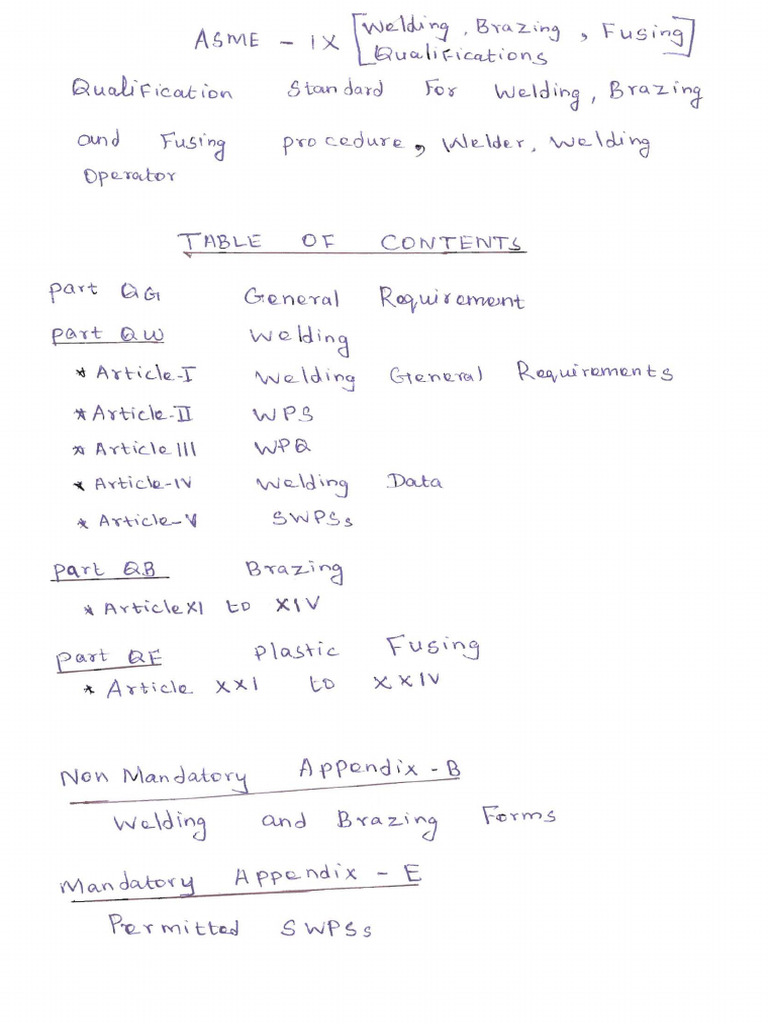 ASME - IX [Welding, Brazing, Fusing]
Qualifications
Qualification Standard For Welding, Brazing
and Fusing procedure, Welder, Welding
Operator
TABLE OF CONTENTS
part QG General Requirement
part QW Welding
* Article-I Welding General Requirements
* Article-II WPS
* Article III WPQ
* Article-IV Welding Data
* Article-V SWPSs
part QB Brazing
* Article XI to XIV
part QF Plastic Fusing
* Article XXI to XXIV
Non Mandatory Appendix - B
Welding and Brazing Forms
Mandatory Appendix - E
Permitted SWPSs